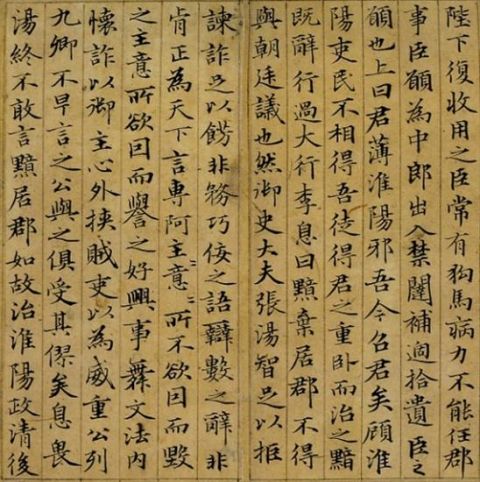 陛下復收用之臣常有狗馬病力不能任郡
事臣願為中郎出入禁闥補過拾遺臣之
願也上曰君薄淮陽邪吾今召君矣顧淮
陽吏民不相得吾徒得君之重卧而治之黯
既辭行過大行李息曰黯棄居郡不得
與朝廷議也然御史大夫張湯智足以拒
諫詐足以餝非務巧佞之語辯數之辭非
肯正為天下言專阿主意〻所不欲因而毀
之主意所欲因而譽之好興事舞文法内
懷詐以御主心外挾賊吏以為威重公列
九卿不早言之公與之俱受其僇矣息畏
湯終不敢言黯居郡如故治淮陽政清後